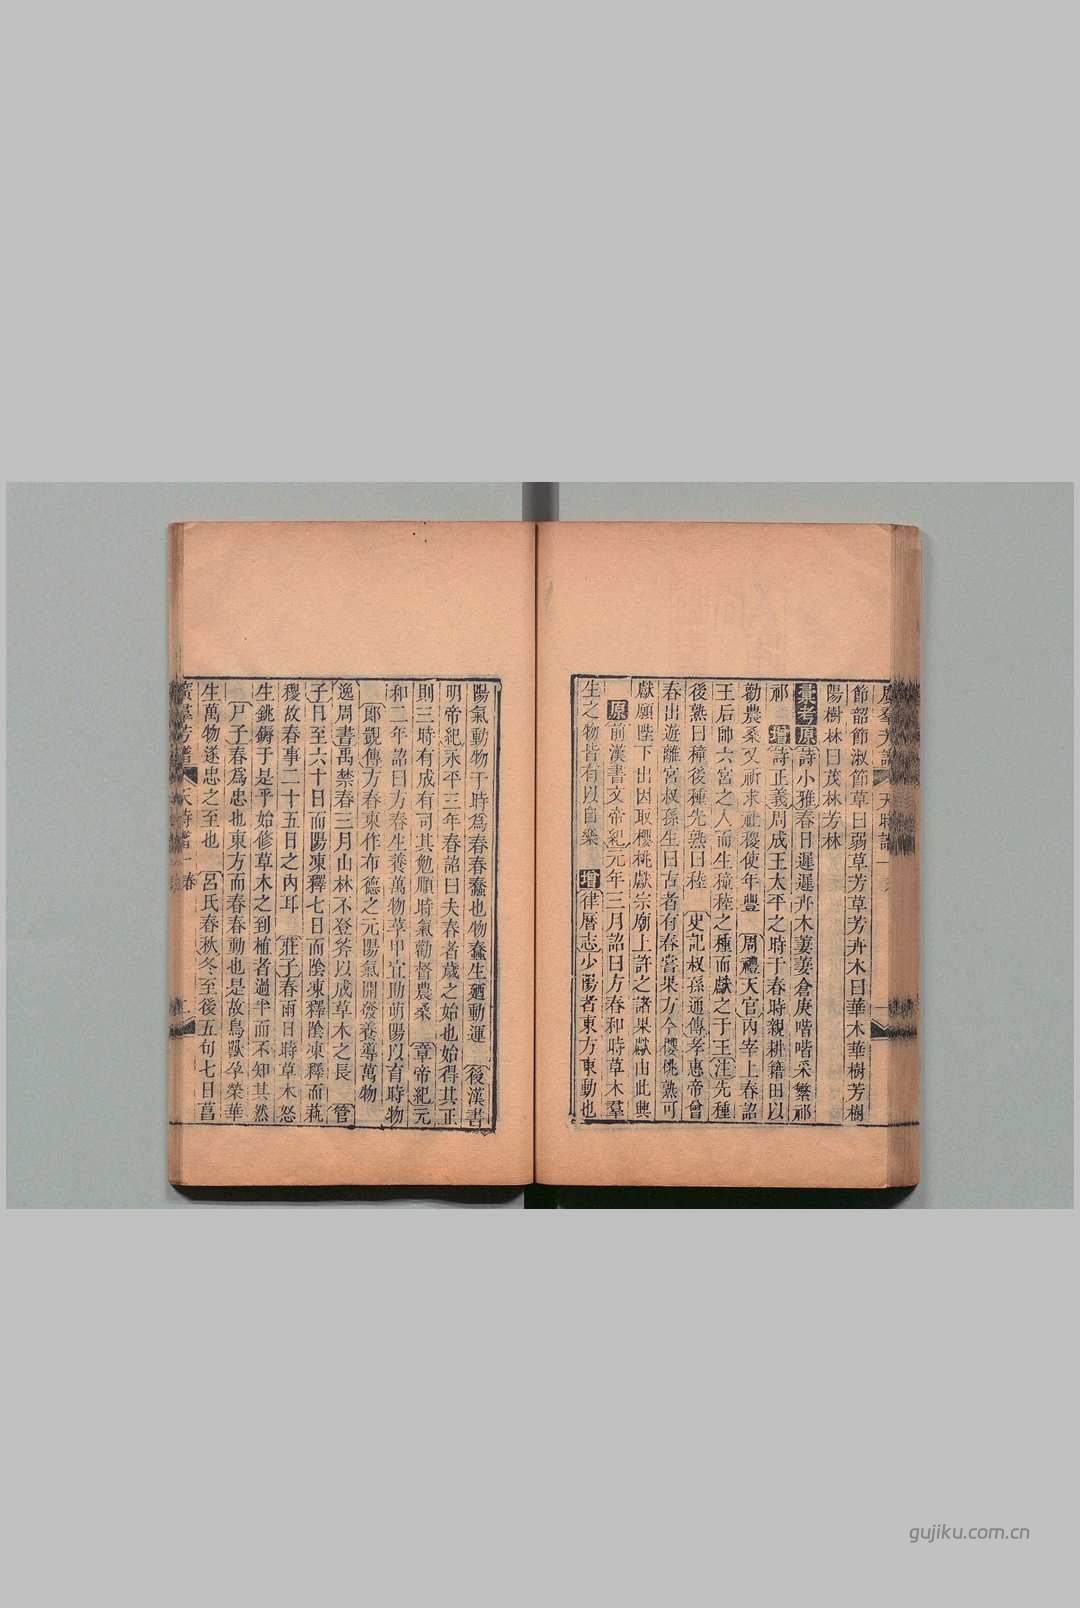 節韶節淑節草曰弱草芳草芳卉木曰華木華樹芳樹
陽樹林曰茂林芳林
彙考原詩小雅春日遲遲卉木萋萋倉庚喈喈采蘩祁
祁 增詩正義周成王太平之時于春時親耕籍田以
勸農桑又祈求社稷使年豐 周禮天官內宰上春詔
王后帥六宮之人而生穜稑之種而獻之于王注先種
後熟曰穜後種先熟曰稑 史記叔孫通傳孝惠帝曾
春出遊離宮叔孫生曰古者有春嘗果方今櫻桃熟可
獻願陛下出因取櫻桃獻宗廟上許之諸果獻由此興
原前漢書文帝紀元年三月詔曰方春和時草木羣
生之物皆有以自樂 增律厤志少陽者東方東動也
陽氣動物于時爲春春蠢也物蠢生廼動運 後漢書
明帝紀永平三年春詔曰夫春者歲之始也始得其正
則三時有成有司其勉順時氣勸督農桑 章帝紀元
和二年詔曰方春生養萬物莩甲宜助萌陽以育時物
郎顗傳方春東作布德之元陽氣開發養導萬物
逸周書禹禁春三月山林不登斧以成草木之長 管
子日至六十日而陽凍釋七日而陰凍釋陰凍釋而蓺
稷故春事二十五日之內耳 莊子春雨日時草木怒
生銚鎒于是乎始修草木之到植者過半而不知其然
尸子春爲忠也東方而春春動也是故鳥獸孕榮華
生萬物遂忠之至也 呂氏春秋冬至後五旬七日菖
廣羣芳譜 天時譜一 春 二
gujiku.com.cn